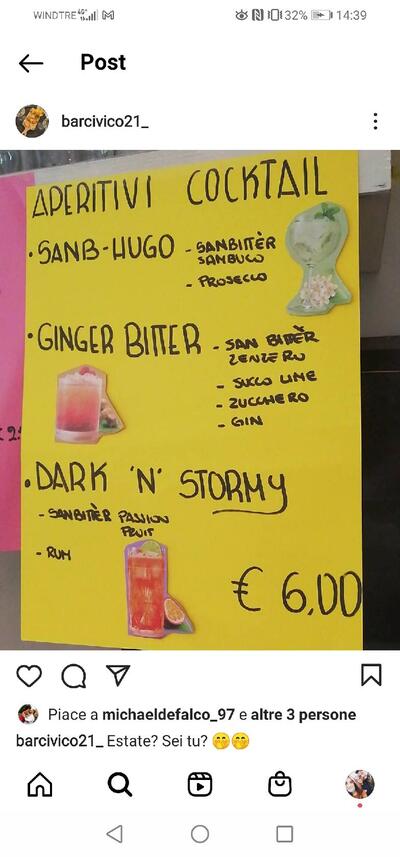 WINDTRE 4G+ 32% 14:39
Post
barcivico21_
APERITIVI COCKTAIL
• SANB-HUGO - SANBITTÈR
SANBUCO
- PROSECCO
• GINGER BITTER - SAN BITTÈR
ZENZERO
- SUCCO LIME
- ZUCCHERO
- GIN
• DARK 'N' STORMY
- SANBITTÈR PASSION
FRUIT
- RUM
€ 6,00
Piace a michaeldefalco_97 e altre 3 persone
barcivico21_ Estate? Sei tu? 🤭🤭